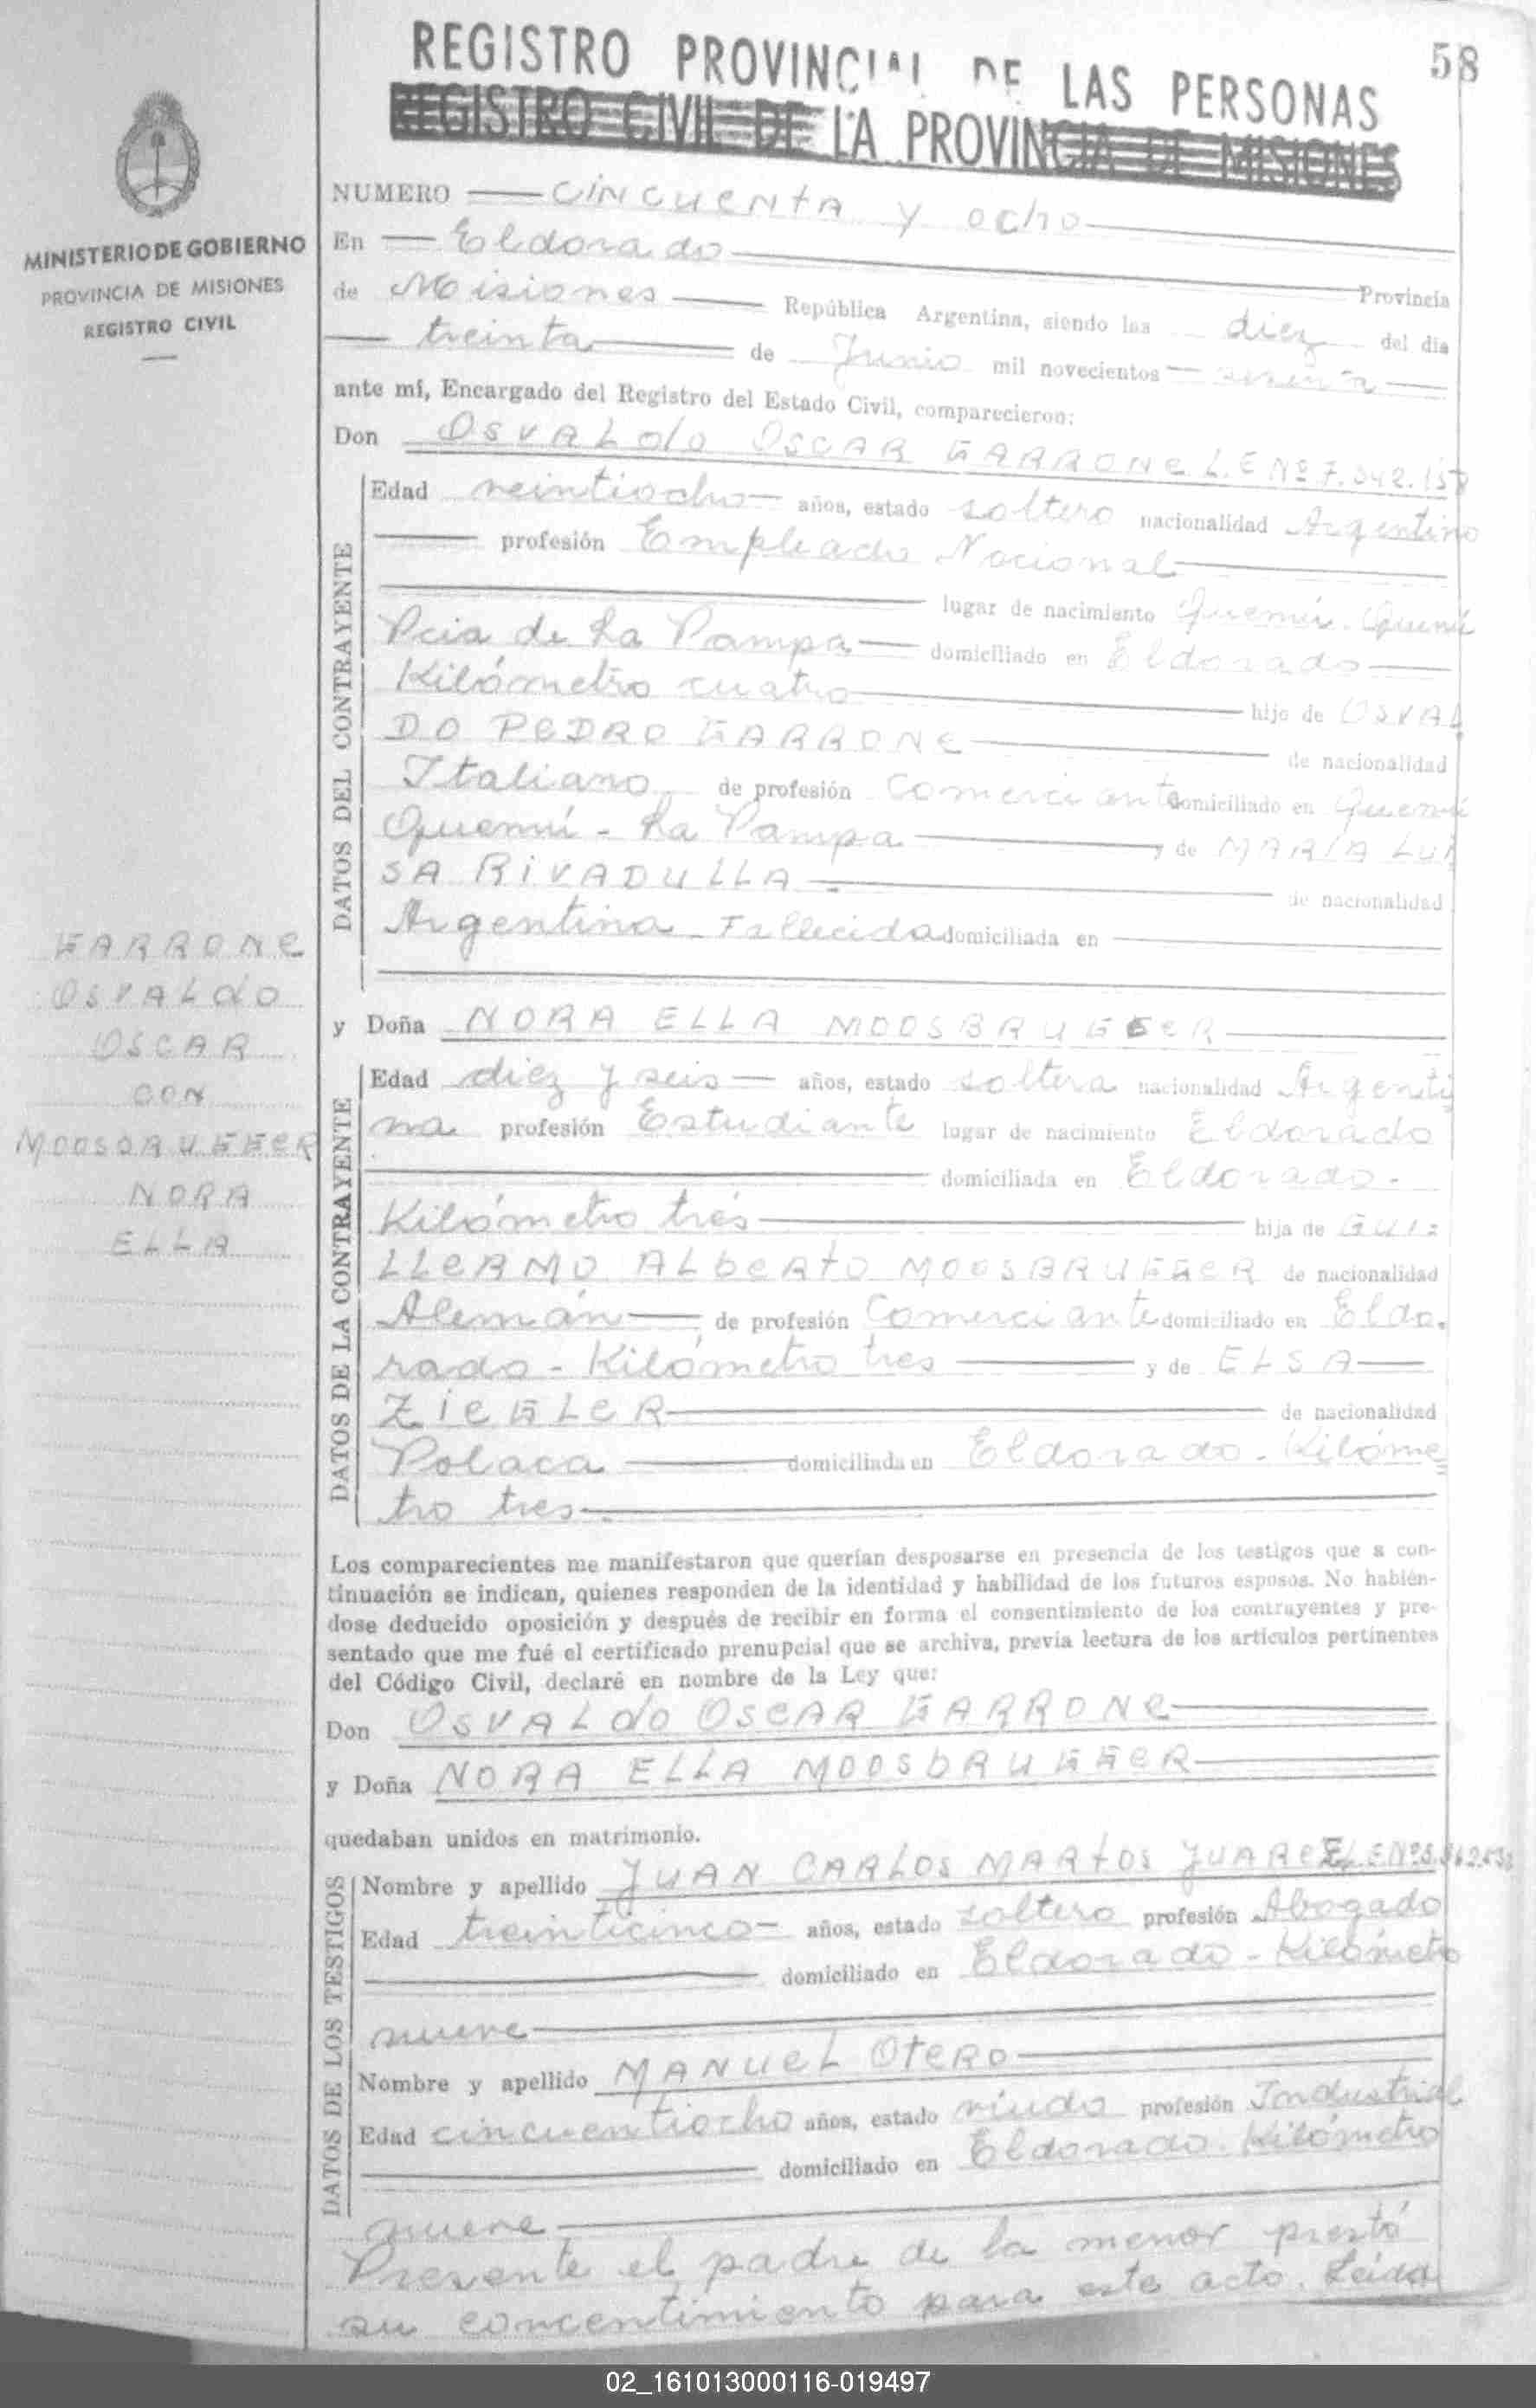 REGISTRO PROVINCIAL DE LAS PERSONAS
58
REGISTRO CIVIL DE LA PROVINCIA DE MISIONES
MINISTERIO DE GOBIERNO
PROVINCIA DE MISIONES
REGISTRO CIVIL
NUMERO CINCUENTA Y OCHO
En Eldorado Provincia
de Misiones República Argentina, siendo las diez del dia
treinta de Junio mil novecientos sesenta
ante mí, Encargado del Registro del Estado Civil, comparecieron:
Don OSVALDO OSCAR GARRONE L.E Nº 7.342.157
DATOS DEL CONTRAYENTE
Edad veintiocho años, estado soltero nacionalidad Argentino
profesión Empleado Nacional
lugar de nacimiento Quemú-Quemú
Pcia de La Pampa domiciliado en Eldorado
Kilómetro cuatro hijo de OSVAL
DO PEDRO GARRONE de nacionalidad
Italiano de profesión Comerciante domiciliado en Quemú
Quemú - La Pampa y de MARIA LUI
SA RIVADULLA de nacionalidad
Argentina - Fallecida domiciliada en
GARRONE
OSVALDO
OSCAR
CON
MOOSBRUGGER
NORA
ELLA
y Doña NORA ELLA MOOSBRUGGER
DATOS DE LA CONTRAYENTE
Edad diez y seis años, estado soltera nacionalidad Argenti
na profesión Estudiante lugar de nacimiento Eldorado
domiciliada en Eldorado -
Kilómetro tres hija de GUI=
LLERMO ALBERTO MOOSBRUGGER de nacionalidad
Alemán de profesión Comerciante domiciliado en Eldo.
rado - Kilómetro tres y de ELSA
ZIEGLER de nacionalidad
Polaca domiciliada en Eldorado - Kilóme
tro tres
Los comparecientes me manifestaron que querían desposarse en presencia de los testigos que a con-
tinuación se indican, quienes responden de la identidad y habilidad de los futuros esposos. No habién-
dose deducido oposición y después de recibir en forma el consentimiento de los contrayentes y pre-
sentado que me fué el certificado prenupcial que se archiva, previa lectura de los artículos pertinentes
del Código Civil, declaré en nombre de la Ley que:
Don OSVALDO OSCAR GARRONE
y Doña NORA ELLA MOOSBRUGGER
quedaban unidos en matrimonio.
DATOS DE LOS TESTIGOS
Nombre y apellido JUAN CARLOS MARTOS JUAREZ L.E Nº
Edad treinticinco años, estado soltero profesión Abogado
domiciliado en Eldorado - Kilómetro
nueve
Nombre y apellido MANUEL OTERO
Edad cincuentiocho años, estado viudo profesión Industrial
domiciliado en Eldorado - Kilómetro
nueve
Presente el padre de la menor prestó
su concentimiento para este acto. Leida
02_161013000116-019497